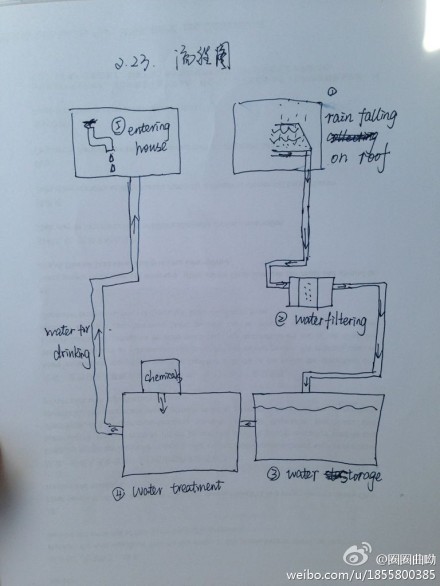 2.23. 流程图
①
rain falling
on roof
⑤ entering
house
② water filtering
water for
drinking
chemicals
③ water storage
④ water treatment
@圈圈曲呦
weibo.com/u/1855800385